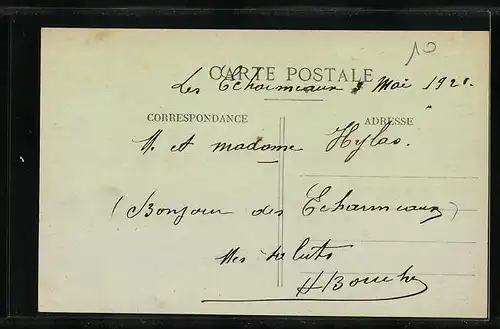 10
CARTE POSTALE
Les Echarmeaux 5 Mai 1921.
CORRESPONDANCE
ADRESSE
M. et madame Hylas.
(Bonjour des Echarmeaux)
Mes saluts
HBouche